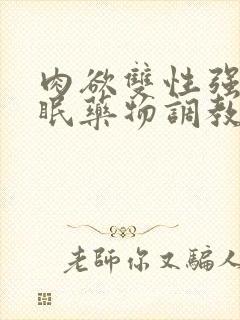 肉欲雙性强
眠藥物調教
老師你又騙人